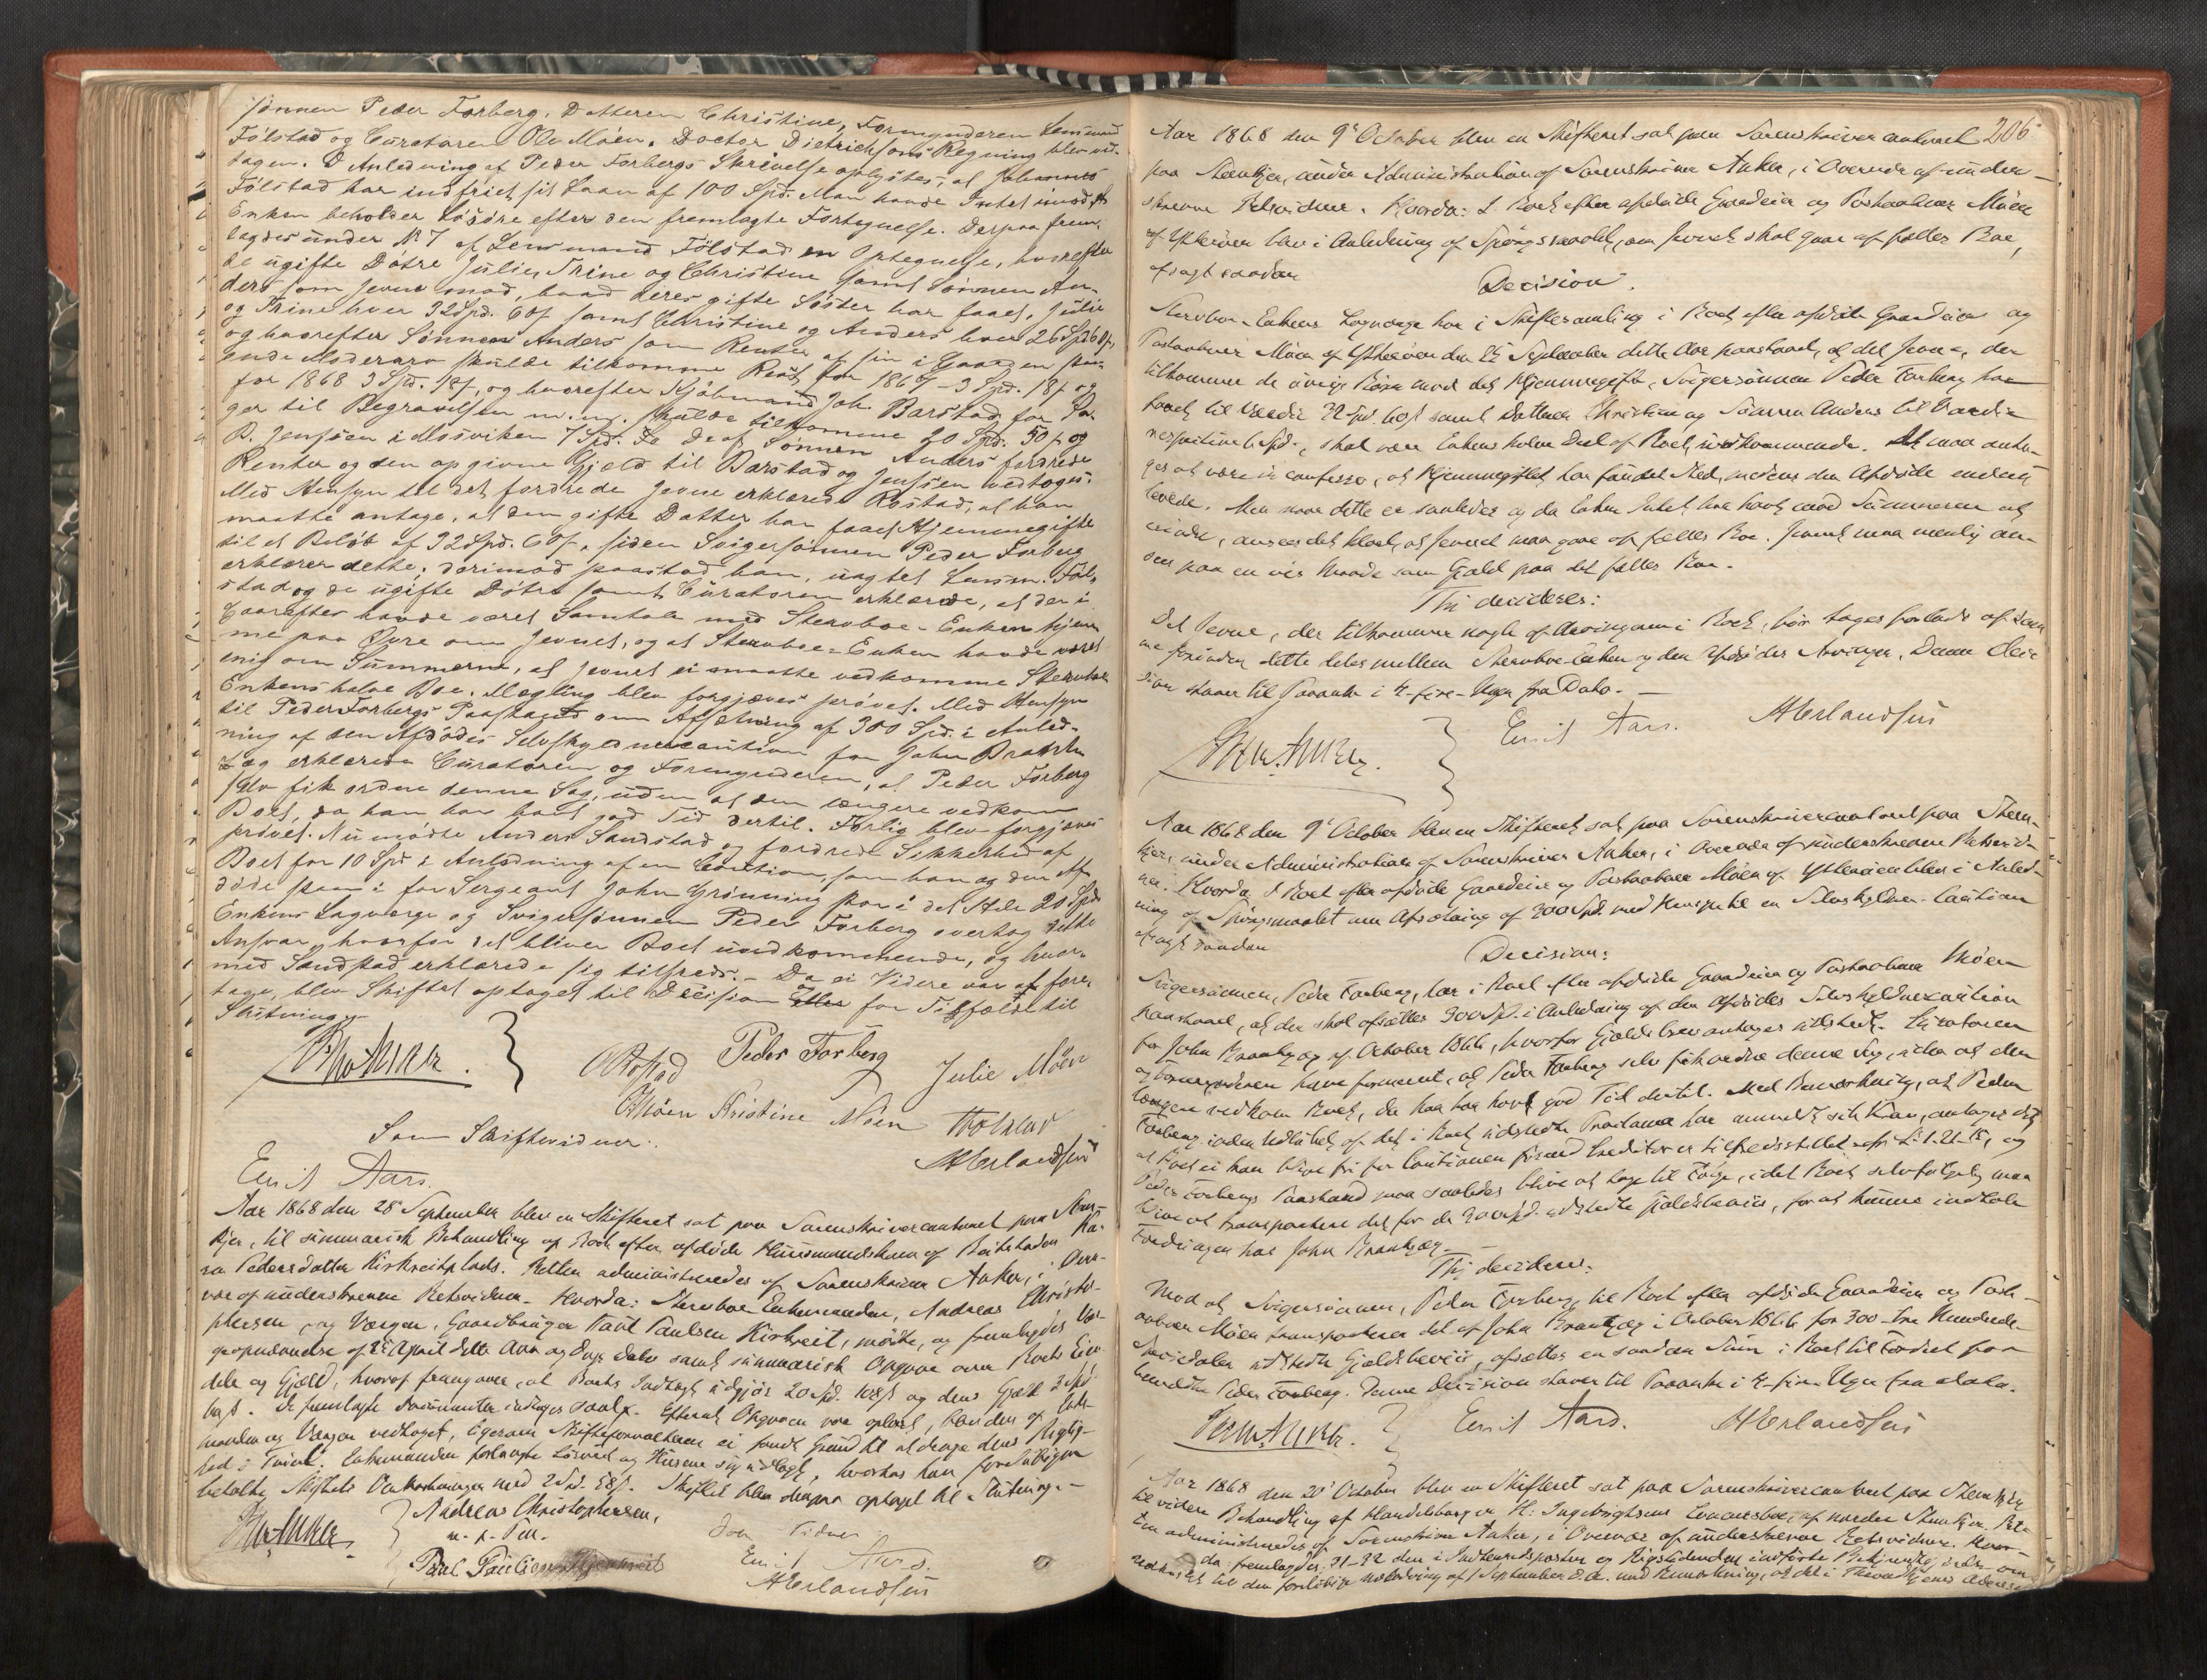 Sønnen Peder Forberg, Datteren Christine, Formynderen Lensmand
Følstad og Curatoren Ole Möen. Doctor Dietrichsons Regning blev ved-
tagen. I Anledning af Peder Forbergs Skrivelse oplystes, at Johannes
Følstad har indfriet sit Laan af 100 Spd. Man havde Intet imod, at
Enken beholder Løsøre efter den fremlagte Fortegnelse. Derpaa frem-
lagdes under No 7 af Lensmand Følstad en Optegnelse, hvorefter
de ugifte Døtre Julie, Trine og Christine samt Sønnen An-
ders som Jevnet mod, hvad deres gifte Søster har faaet, Julie
og Trine hver 32 Spd. 60 s samt Christine og Anders hver 26 Spd 60 s,
og hvorefter Sønnen Anders som Renter af sin i Gaarden staa-
ende Mødrenarv skulde tilkomme Rest for 1867 - 3 Spd. 18 s og
for 1868 3 Spd. 18 s, og hvorefter Kjøbmand Joh. Barstad for Va-
rer til Begravelsen m.m. skulde tilkomme 20 Spd. 50 s og
P. Jenssen i Mosviken 7 Spd. De af Sønnen Anders fordrede
Renter og den opgivne Gjæld til Barstad og Jenssen vedtoges.
Med Hensyn til det fordrede Jevne erklærede Rostad, at han
maatte antage, at den gifte Datter har faaet Hjemmegifte
til et Beløb af 32 Spd. 60 s, siden Svigersønnen Peder Forberg
erklærer dette; derimod paastod han, uagtet Lensm. Føl-
stad og de ugifte Døtre samt Curatoren erklærede, at der i
Foraaret havde været Samtale med Stervboe-Enken hjem-
me paa Øvre om Jevnet, og at Stervboe-Enken havde været
enig om Summerne, at Jevnet ei maatte vedkomme Stervboe-
Enkens halve Boe. Mægling blev forgjæves prøvet. Med Hensyn
til Peder Forbergs Paastand om Afsætning af 300 Spd. i Anled-
ning af den Afdødes Selvskyldnercaution for John
erklærede Curatoren og Formynderen, at Peder Forberg
selv fik ordne denne Sag, uden at den længere vedkom
Boet, da han har havt god Tid dertil. Forlig blev forgjæves
prøvet. Nu mødte Anders Sandstad og fordrede Sikkerhed af
Boet for 10 Spd i Anledning af en Caution, som han og den Af-
døde staar i for Sergeant John Grønning stor i det Hele 20 Spd.
Enkens Laugværge og Svigersønnen Peder Forberg overtog dette
Ansvar, hvorfor det bliver Boet uvedkommende, og hvor-
med Sandstad erklærede sig tilfreds. - Da ei Videre var at fore-
tage, blev Skiftet optaget til Decision og for Tilfældet til
Slutning.
Anker. O Rostad Peder Forberg Julie Möen
OMöen Kristine Möen
Som Skiftevidner:
Emil Aars. HErlandsen
Aar 1868 den 28 September blev en Skifteret sat paa Sorenskrivercontoret paa Sten-
kjer, til summarisk Behandling af Boet efter afdøde Huusmandskone af Beitstaden Ka-
ren Pedersdatter Kirkreitplads. Retten administreredes af Sorenskriver Anker, i Over-
vær af underskrevne Retsvidner. Hvorda: Stervboe Enkemanden, Andreas Christo-
phersen, og Værgen, Gaardbruger Paul Paulsen Kirkreit, mødte, og fremlagdes Vær-
geopnævnelse af 25 April dette Aar og Dags Dato samt summarisk Opgave over Boets Eien-
dele og Gjæld, hvoraf fremgaaer, at Boets Indtægt udgjør 20 Spd. 108 s og dens Gjæld 3 Spd
. De fremlagte Documenter indtages saal. Efterat Opgaven var oplæst, blev den af Enke-
manden og Værgen vedtaget, ligesom Skifteforvalteren ei fandt Grund til at drage dens Rigtig-
hed i Tvivl. Enkemanden forlangte Løsøret og Husene sig udlagt, hvorhos han forpligtigen
betalte Skiftets Omkostninger med 2 Spd. 58 s. Skiftet blev derpaa optaget til Slutning. -
Anker. Andreas Christophersen,
m. p. Pen. Som Vidner:
Paul Paulsen Emil Aars.
HErlandsen
206
Aar 1868 den 9de October blev en Skifteret sat paa Sorenskrivercontoret
paa Stenkjer, under Administration af Sorenskriver Anker, i Overvær af under-
skrevne Retsvidner. Hvorda: I Boet efter afdøde Gaardeier og Postaabner Möen
af Ytterøen blev i Anledning af Spørgsmaalet, om Jevnet skal gaae af fælles Boe,
afsagt saadan
Decision.
Stervboe-Enkens Laugværge har i Skiftesamling i Boet efter afdøde Gaardeier og
Postaabner Möen af Ytterøen den 25 September dette Aar paastaaet, at det Jevne, der
tilkommer de øvrige Børn mod det Hjemmegifte, Svigersønnen Peder Forberg har
faaet til Værdie 32 Spd. 60 s samt Datteren Christine og Sønnen Anders til Værdie
respective 6 Spd., skal være Enkens halve Deel af Boet uvedkommende. Det maa anta-
ges at være in confesso, at Hjemmegiftet har fundet Sted, medens den Afdøde endnu
levede. Men naar dette er saaledes og da Enken Intet har havt mod Summerne at
erindre, ansees det klart, at Jevnet maa gaae af fælles Boe. Jevnet maa nemlig an-
sees paa en vis Maade som Gjæld paa det fælles Boe.
Thi decideres:
Det Jevne, der tilkommer nogle af Arvingerne i Boet, bør tages forlods af sam-
me forinden dette deles mellem Stervboe-Enken og den Afdødes Arvinger. Denne Deci-
sion staaer til Paaanke i 4-fire-Uger fra Dato. -
Anker. Emil Aars. HErlandsen
Aar 1868 den 9de October blev en Skifteret sat paa Sorenskrivercontoret paa Sten-
kjer, under Administration af Sorenskriver Anker, i Overvær af underskrevne Retsvid-
ner. Hvorda: I Boet efter afdøde Gaardeier og Postaabner Möen af Ytterøen blev i Anled-
ning af Spørgsmaalet om Afsætning af 300 Spd. med Hensyn til en Selvskyldner-Caution
afsagt saadan
Decision:
Svigersønnen, Peder Forberg, har i Boet efter afdøde Gaardeier og Postaabner Möen
paastaaet, at der skal afsættes 300 Spd. i Anledning af den Afdødes Selvskyldnercaution
for John af October 1866, hvorfor Gjældsbrev antages udstedt. Curatoren
og Formynderen have formeent, at Peder Forberg selv fik ordne denne Sag, uden at den
længere vedkom Boet, da han har havt god Tid dertil. Med Bemærkning, at Peder
Forberg inden Udløbet af det i Boet udstedte Proclama har anmeldt sit Krav, antages det,
at Boet ei kan blive fri for Cautionen førend Creditor er tilfredsstillet cfr. L: 1-21-15, og
Peder Forbergs Paastand maa saaledes blive at tage til Følge, idet Boet selvfølgelig maa
blive at transportere det for de 300 Spd. udstedte Gjældsbeviis, for at kunne indtale
Fordringen hos John
Thi decideres:
Mod at Svigersønnen, Peder Forberg, til Boet efter afdøde Gaardeier og Post-
aabner Möen transporterer det af John i October 1866 for 300-tre Hundrede-
Speciedaler udstedte Gjældsbeviis, afsættes en saadan Sum i Boet til Fordeel for
bemeldte Peder Forberg. Denne Decision staaer til Paaanke i 4-fire Uger fra Dato.
Anker. Emil Aars. HErlandsen
Aar 1868 den 20 October blev en Skifteret sat paa Sorenskrivercontoret paa Stenkjer
til videre Behandling af Handelsborger H: Ingebrigtsens Concursboe, af nordre Stenkjer. Ret-
ten administreredes af Sorenskriver Anker, i Overvær af underskrevne Retsvidner. Hvor-
da: fremlagdes: 31-32 den i Indherredsposten og Rigstidenden indførte Bekjendtgjørelse om
til den foreløbige Udlodning af 1 September d.A. med Bemærkning, at det i Throndhjems Adresse